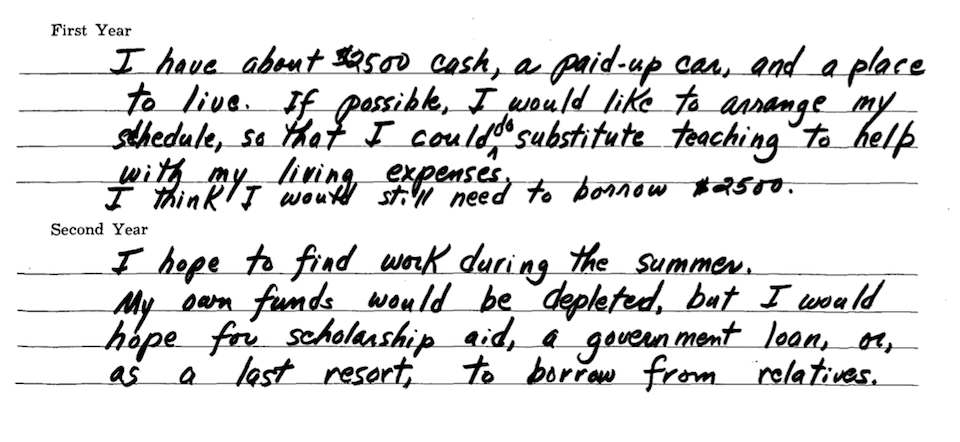 First Year
I have about $2500 cash, a paid-up car, and a place
to live. If possible, I would like to arrange my
schedule, so that I could do substitute teaching to help
with my living expenses.
I think I would still need to borrow $2500.
Second Year
I hope to find work during the summer.
My own funds would be depleted, but I would
hope for scholarship aid, a government loan, or,
as a last resort, to borrow from relatives.